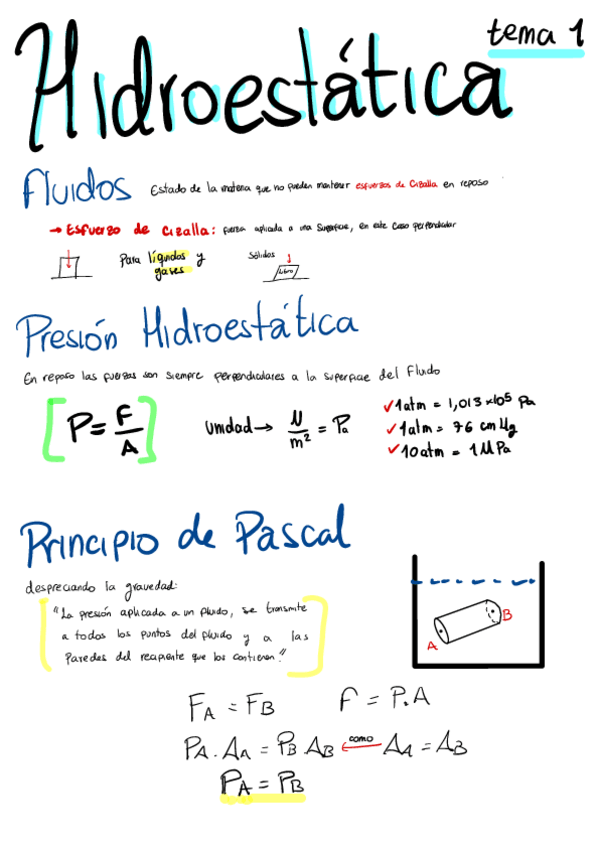 tema 1
Hidroestática
Fluidos Estado de la materia que no pueden mantener esfuerzos de cizalla en reposo
→ Esfuerzo de cizalla: fuerza aplicada a una superficie, en este caso perpendicular
Para líquidos y gases
Sólidos
Libro
Presión Hidroestática
En reposo las fuerzas son siempre perpendiculares a la superficie del fluido
[P = F/A] Unidad → N/m² = Pa
✓ 1 atm = 1,013 × 10⁵ Pa
✓ 1 atm = 76 cm Hg
✓ 10 atm = 1 MPa
Principio de Pascal
despreciando la gravedad:
"La presión aplicada a un fluido, se transmite
a todos los puntos del fluido y a las
Paredes del recipiente que los contienen."
A
B
F_A = F_B F = P.A
P_A . A_A = P_B . A_B ← como A_A = A_B
P_A = P_B